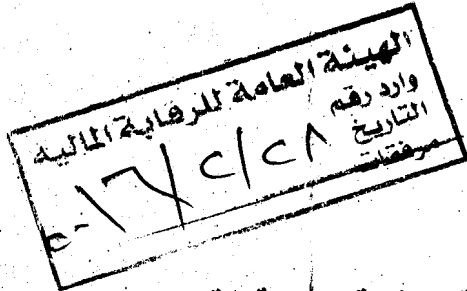 الهيئة العامة للرقابة المالية
وارد رقم
التاريخ ٢٠١٦/٢/٢٨
مرفقات